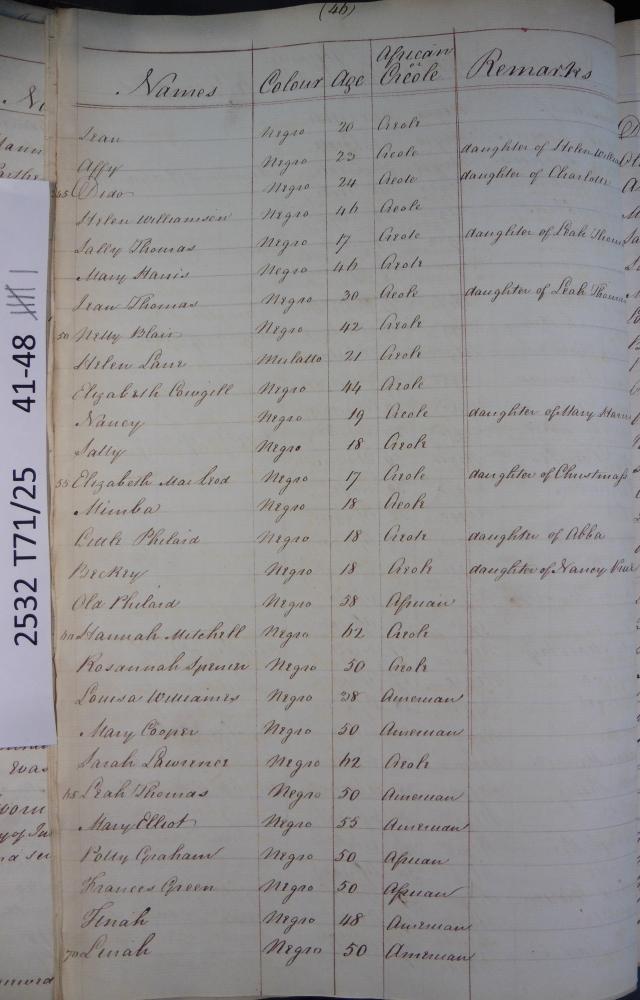 (46)
Names Colour Age African or Creole Remarks
Jean Negro 20 Creole
Affy Negro 23 Creole daughter of Helen
45 Dido Negro 24 Creole daughter of Charlotte
Helen Williamson Negro 46 Creole
Sally Thomas Negro 17 Creole daughter of Leah Thomas
Mary Harris Negro 46 Creole
Jean Thomas Negro 30 Creole daughter of Leah Thomas
50 Hetty Blair Negro 42 Creole
Helen Lane Mulatto 21 Creole
Elizabeth Cowgill Negro 44 Creole
Nancy Negro 19 Creole daughter of Mary Harris
Sally Negro 18 Creole
55 Elizabeth MacLeod Negro 17 Creole daughter of Christmas
Mimba Negro 18 Creole
Little Philard Negro 18 Creole daughter of Abba
Beckey Negro 18 Creole daughter of Nancy
Old Philard Negro 58 African
60 Hannah Mitchell Negro 62 Creole
Rosannah Spencer Negro 50 Creole
Louisa Williames Negro 38 American
Mary Cooper Negro 50 American
Sarah Lawrence Negro 62 Creole
65 Leah Thomas Negro 50 American
Mary Elliot Negro 55 American
Polly Graham Negro 50 African
Frances Green Negro 50 African
Tinah Negro 48 American
70 Linah Negro 50 American
2532 T71/25 41-48